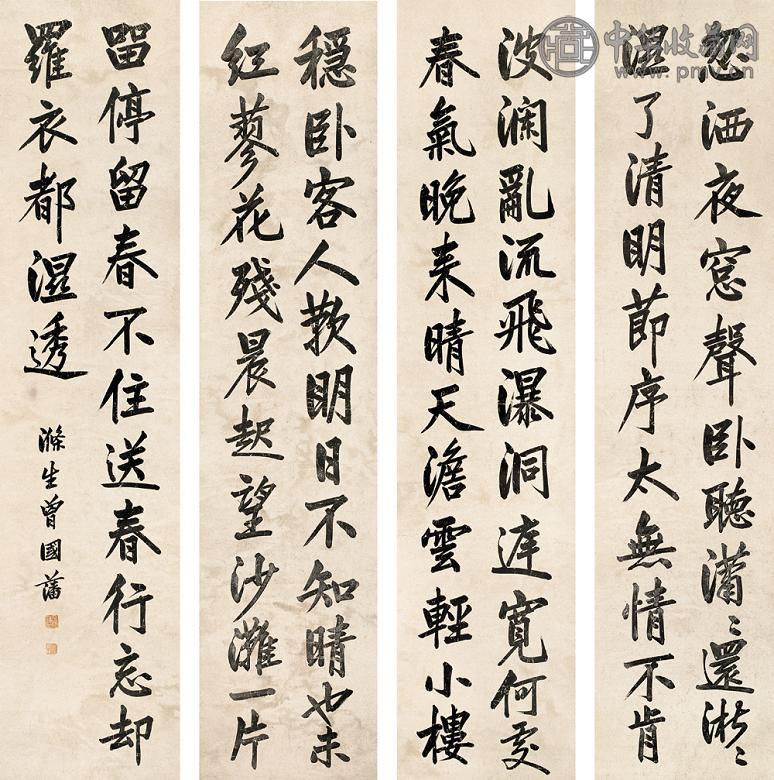 忽洒夜窓聲卧聽瀟〻還淅〻
湿了清明節序太無情不肯
波澜亂流飛瀑洞庭寬何處
春氣晚来晴天澹雲輕小樓
穩卧客人歎明日不知晴也未
红蓼花殘晨起望沙灘一片
畱停留春不住送春行忘却
羅衣都湿透
滌生曾國藩
中华收藏网
www.pmv.cn